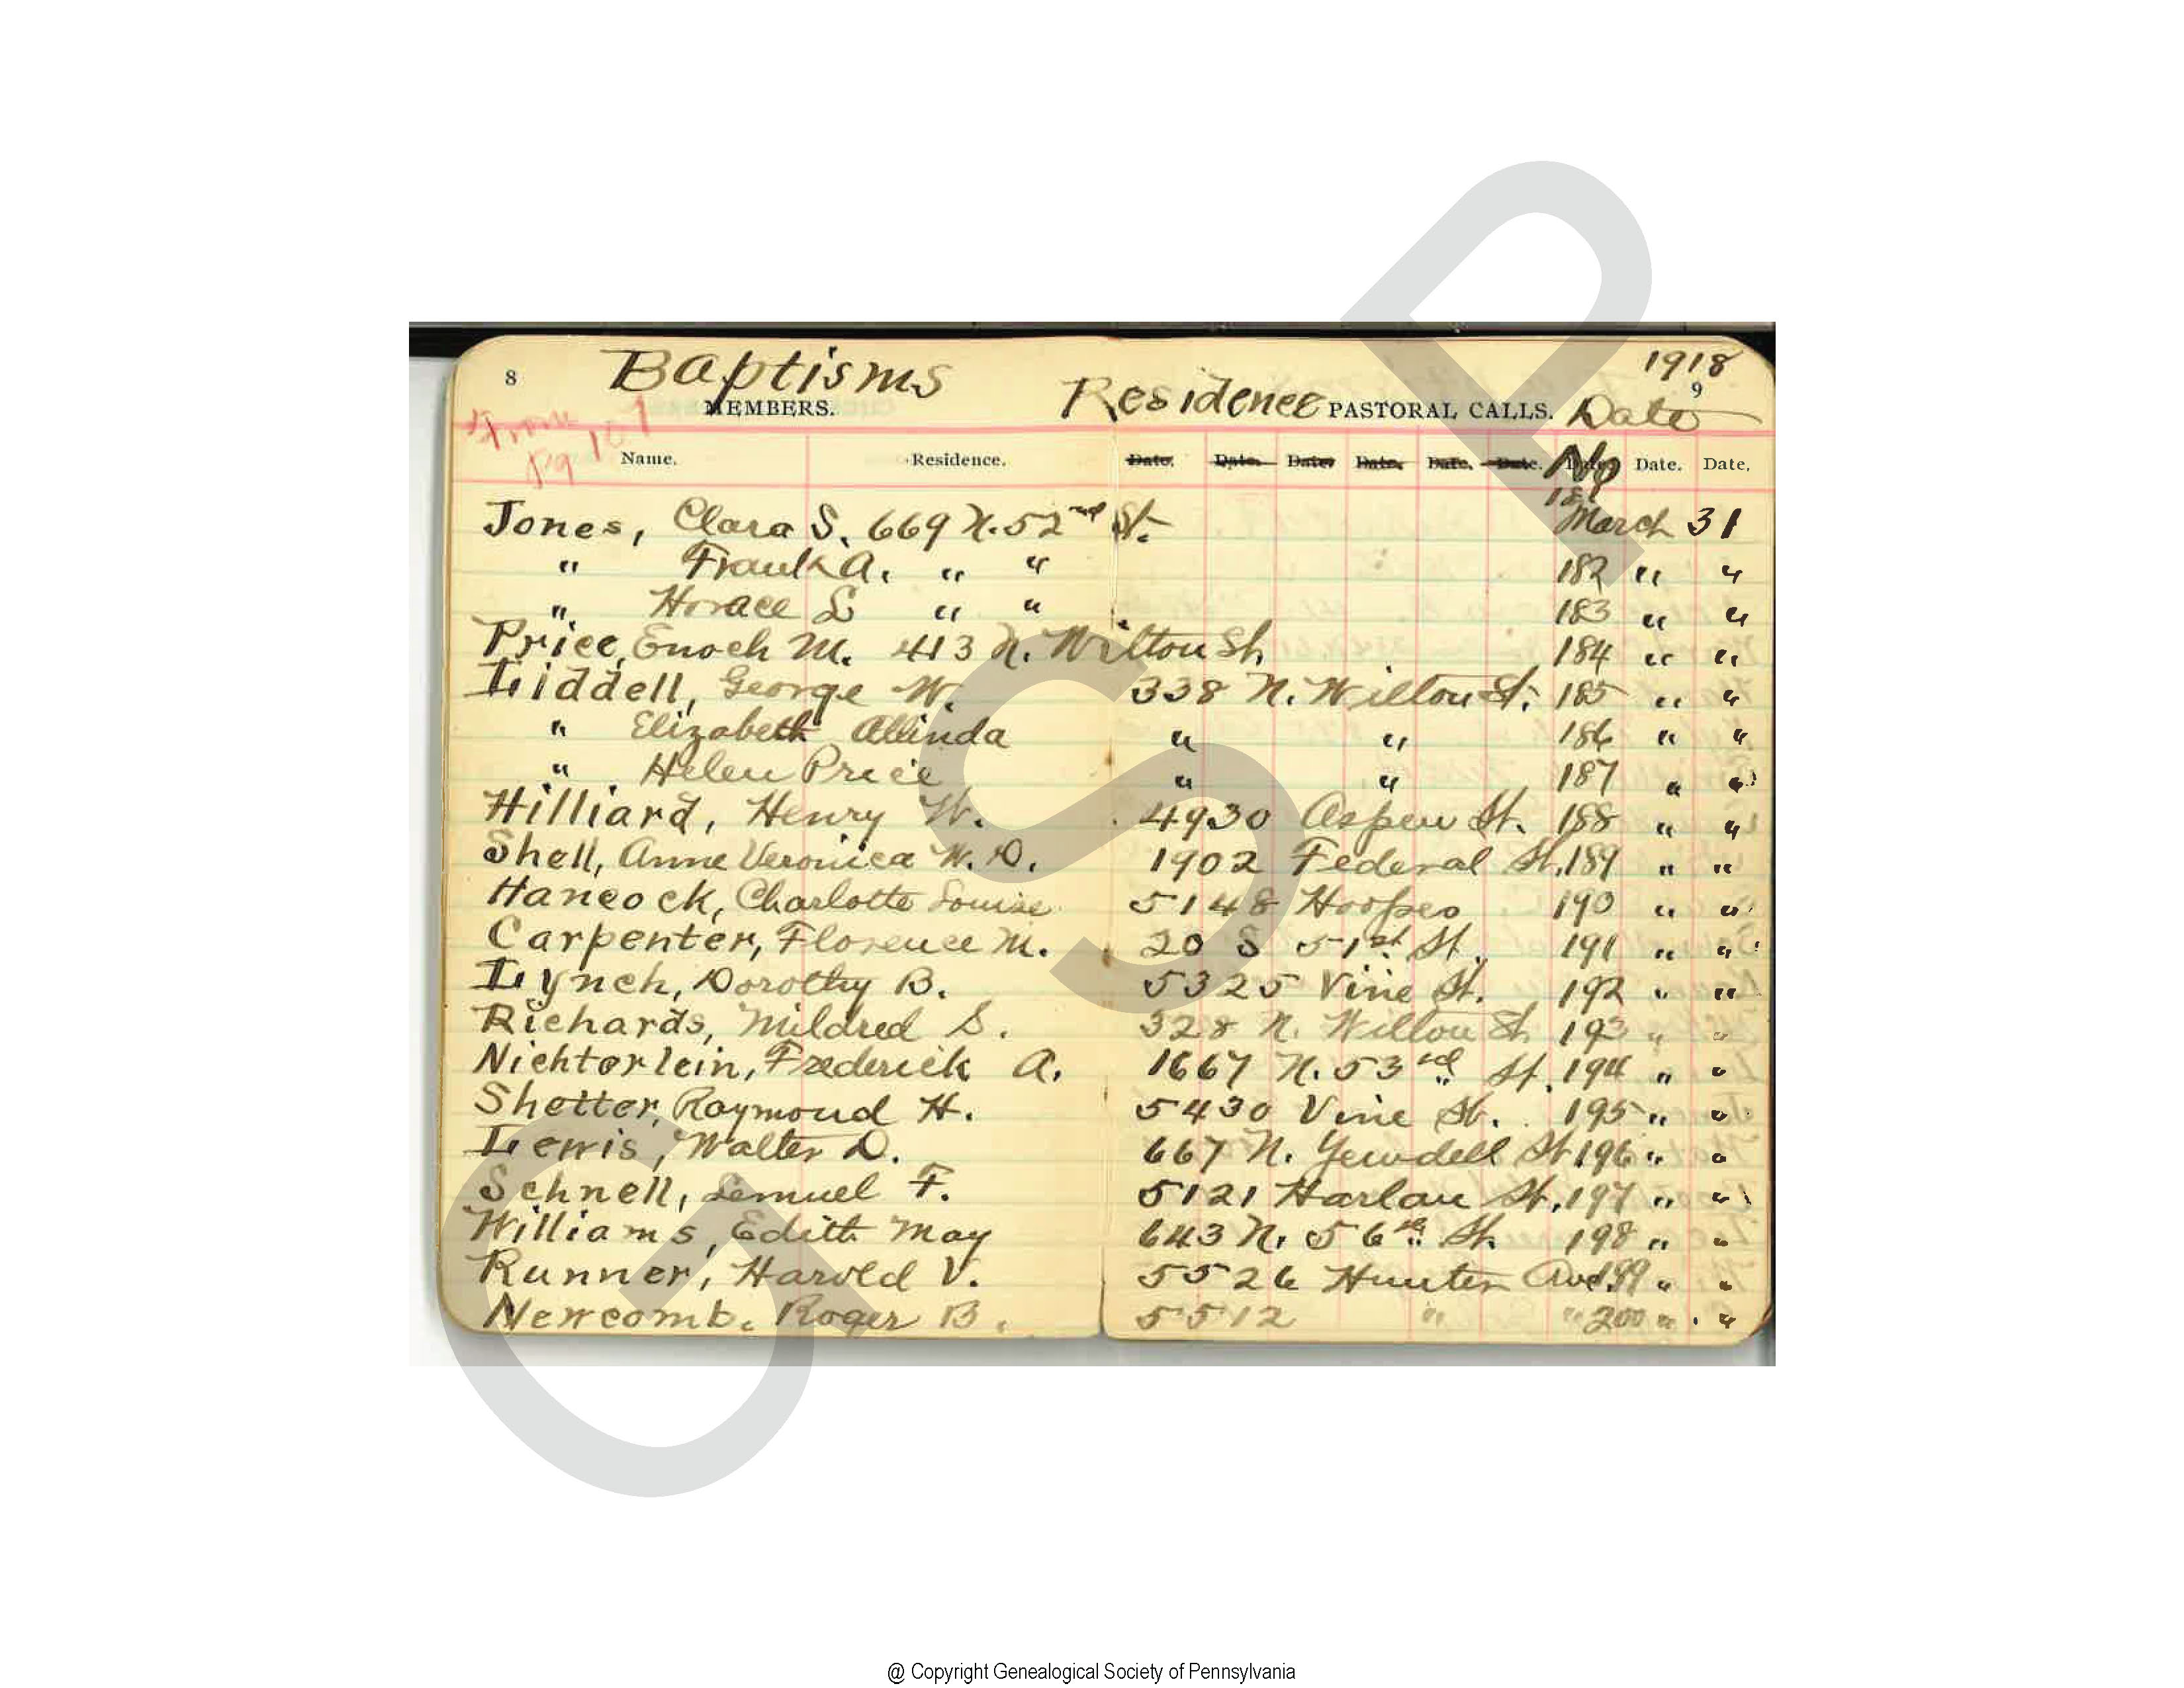 8 Baptisms 1918
9
MEMBERS. Residence PASTORAL CALLS. Date
From
Pg 107
Name. Residence. Date. Date. Date. Date. Date. Date. No Date. Date.
181
Jones, Clara S. 669 N. 52nd St. March 31
" Frank A. " " 182 " "
" Horace S " " 183 " "
Price, Enoch M. 413 N. Wilton St. 184 " "
Liddell, George W. 338 N. Wilton St. 185 " "
" Elizabeth Allinda " " 186 " "
" Helen Price " " 187 " "
Hilliard, Henry W. 4930 Aspen St. 188 " "
Shell, Anne Veronica W. D. 1902 Federal St. 189 " "
Hancock, Charlotte Louise 5148 Hoopes 190 " "
Carpenter, Florence M. 20 S 51st St. 191 " "
Lynch, Dorothy B. 5325 Vine St. 192 " "
Richards, Mildred S. 328 N. Wilton St. 193 " "
Nichterlein, Frederick A. 1667 N. 53rd St. 194 " "
Shetter, Raymond H. 5430 Vine St. 195 " "
Lewis, Walter D. 667 N. Yewdell St 196 " "
Schnell, Lemuel F. 5121 Harlan St. 197 " "
Williams, Edith May 643 N. 56th St. 198 " "
Runner, Harold V. 5526 Hunter Ave. 199 " "
Newcomb, Roger B. 5512 " " 200 " "
GSP
@ Copyright Genealogical Society of Pennsylvania